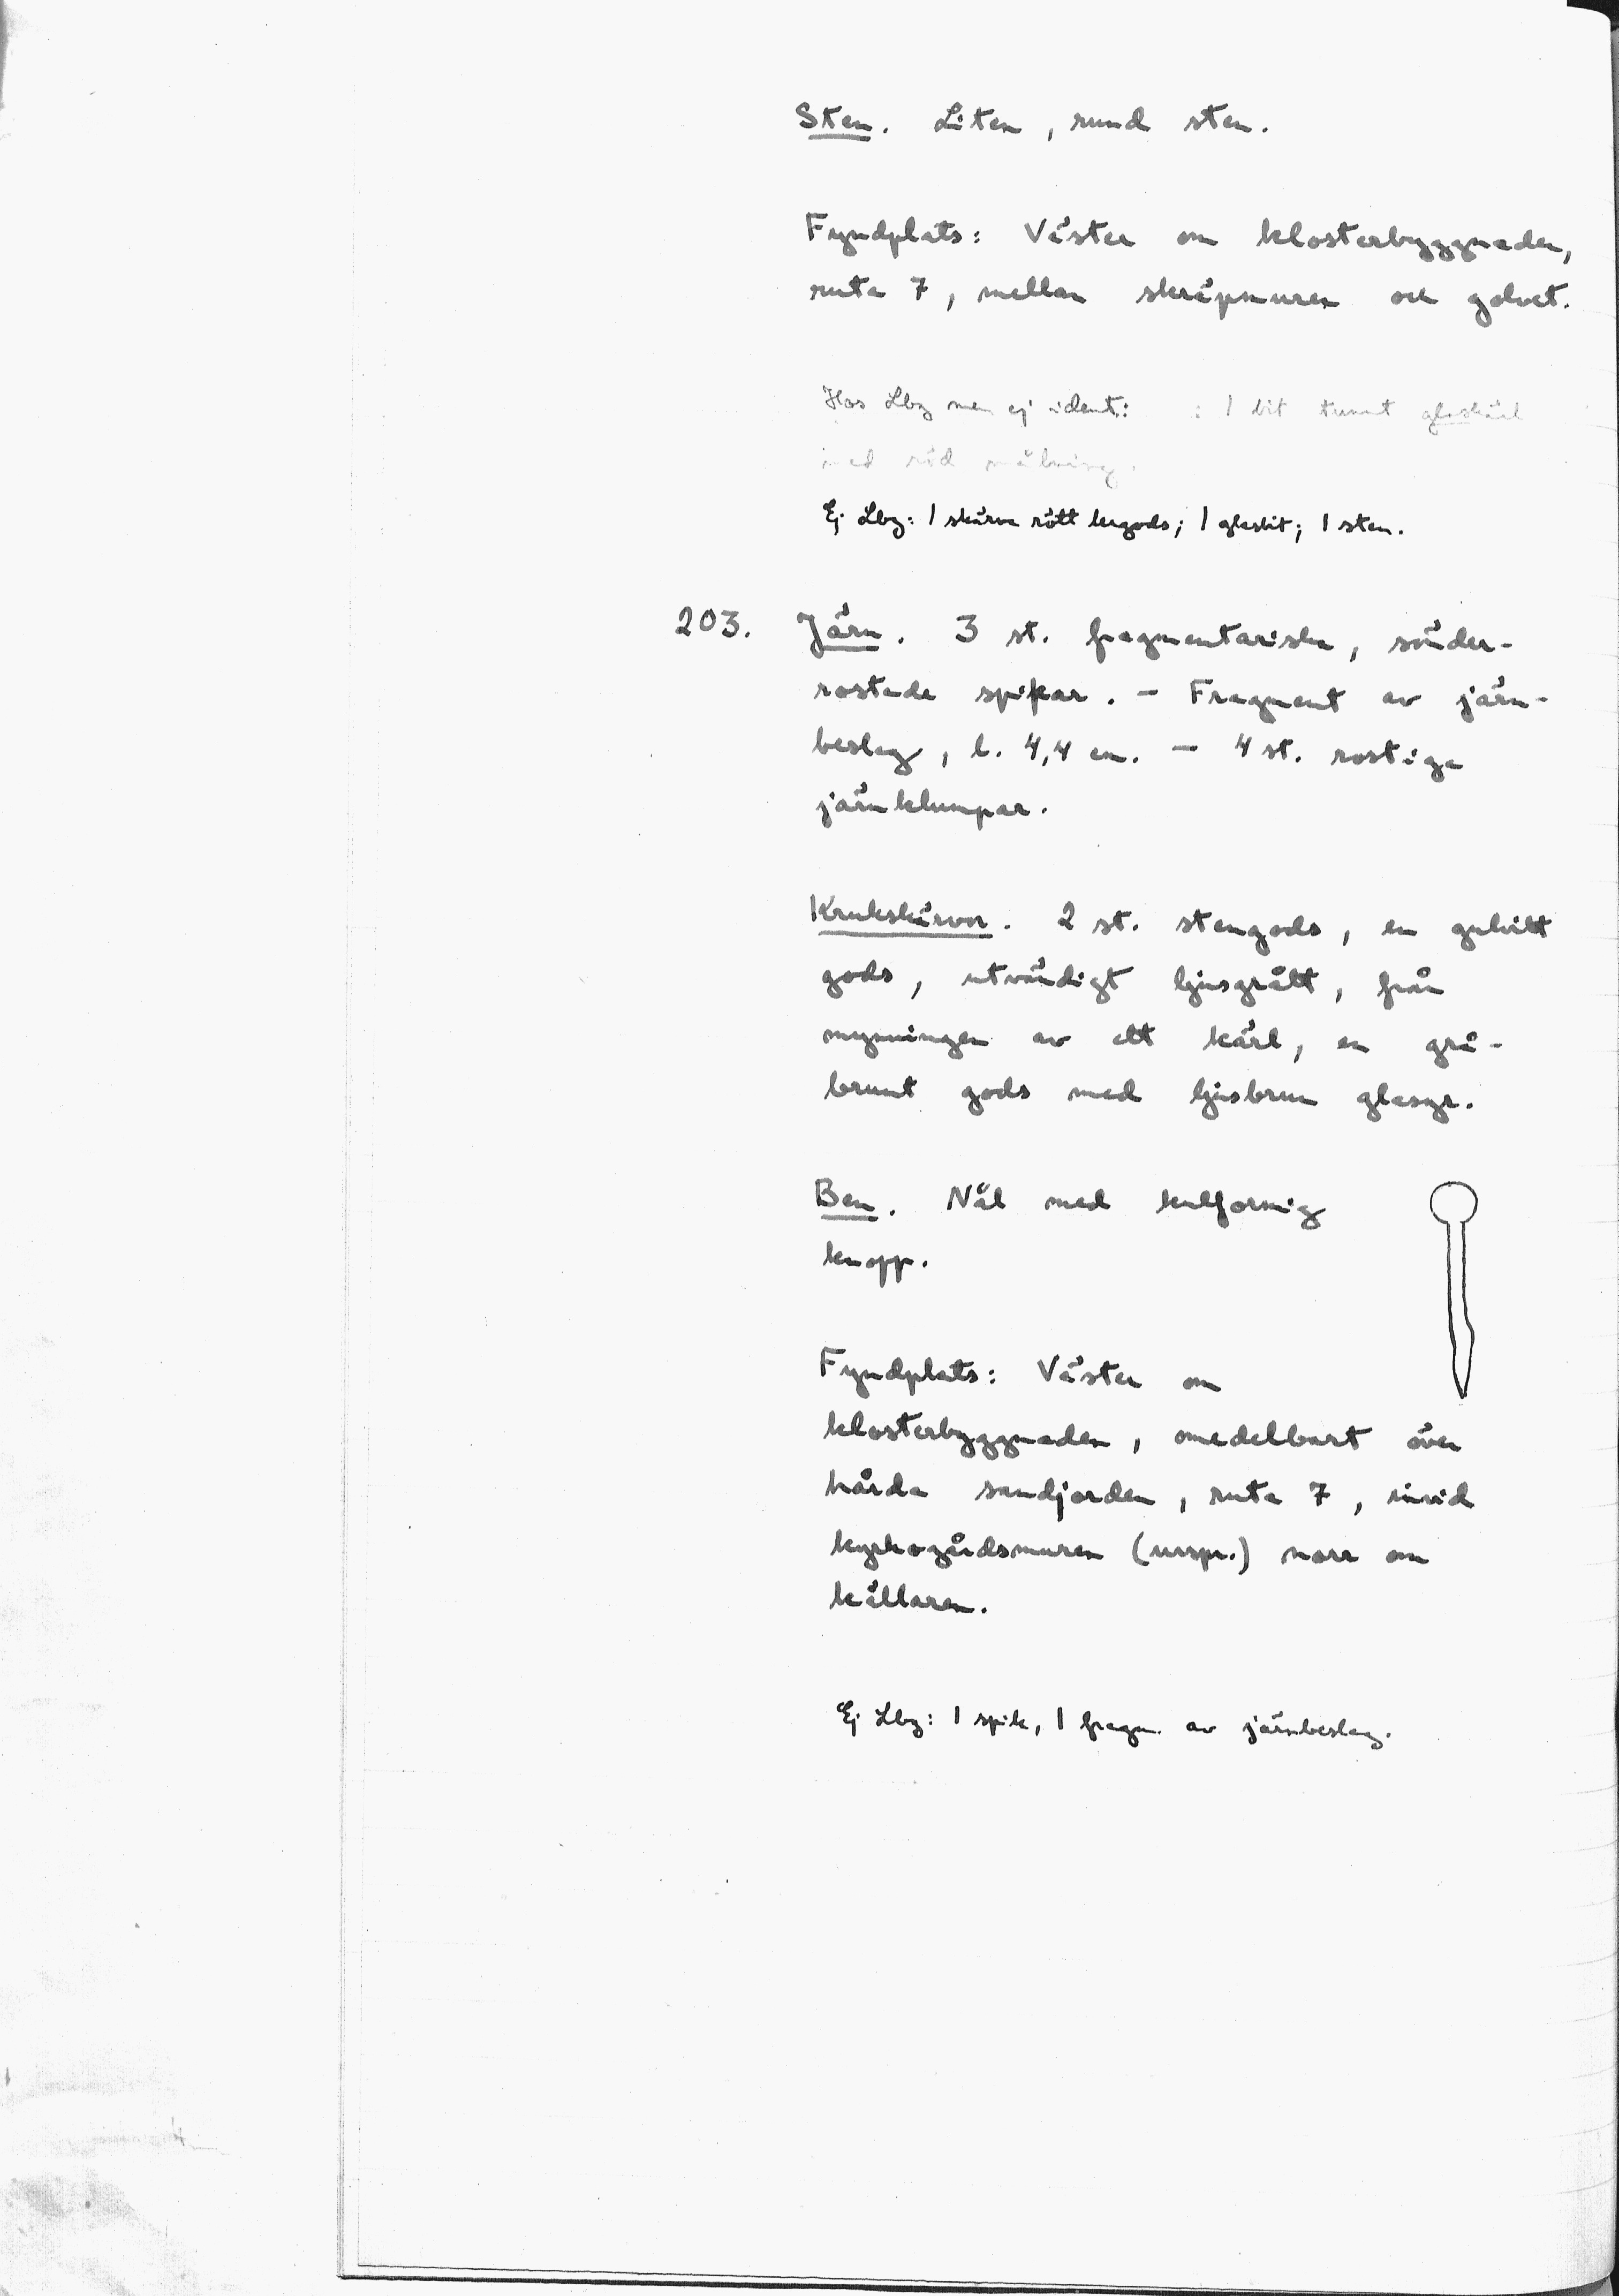 Sten. Liten, rund sten.
Fyndplats: Väster om klosterbyggnaden,
ruta 7, mellan skräpmuren och golvet.
Hos Lbg men ej ident: : 1 bit tunnt glaskärl
med röd målning.
Ej Lbg: 1 skärva rött lergods; 1 glasbit; 1 sten.
203. Järn. 3 st. fragmentariska, sönder-
rostade spikar. - Fragment av järn-
beslag, l. 4,4 cm. - 4 st. rostiga
järnklumpar.
Krukskärvor. 2 st. stengods, en gulvitt
gods, utvändigt ljusgrått, från
mynningen av ett kärl, en grå-
brunt gods med ljusbrun glasyr.
Ben. Nål med kulformig
knopp.
Fyndplats: Väster om
klosterbyggnaden, omedelbart över
hårda sandjorden, ruta 7, invid
kyrkogårdsmuren (urspr.) norr om
källaren.
Ej Lbg: 1 spik, 1 fragm. av järnbeslag.